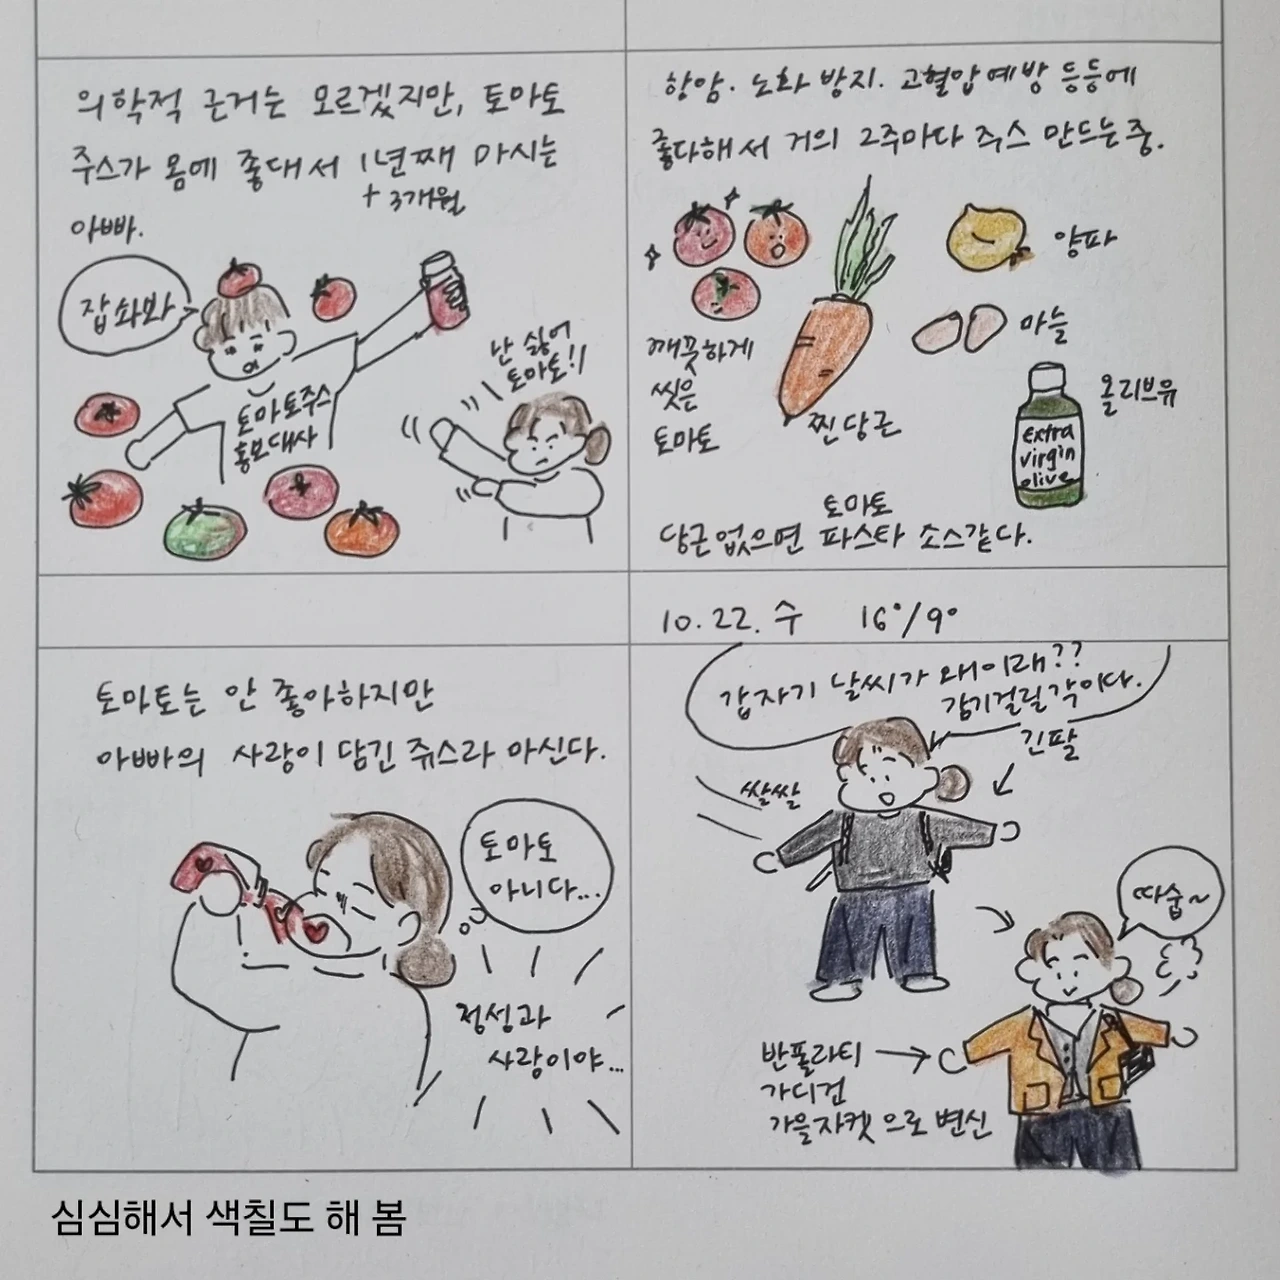 의학적 근거는 모르겠지만, 토마토
주스가 몸에 좋대서 1년째 마시는
+ 3개월
아빠.
잡솨봐
토마토주스
홍보대사
난 싫어
토마토!!
항암. 노화 방지. 고혈압 예방 등등에
좋다해서 거의 2주마다 쥬스 만드는중.
양파
마늘
깨끗하게
씻은
토마토
찐당근
올리브유
Extra
virgin
olive
토마토
당근없으면 파스타 소스같다.
토마토는 안 좋아하지만
아빠의 사랑이 담긴 쥬스라 마신다.
토마토
아니다...
정성과
사랑이야...
10.22. 수 16°/9°
갑자기 날씨가 왜이래??
감기걸릴각이다.
긴팔
쌀쌀
따숩~
반폴라티
가디건
가을자켓으로 변신
심심해서 색칠도 해 봄